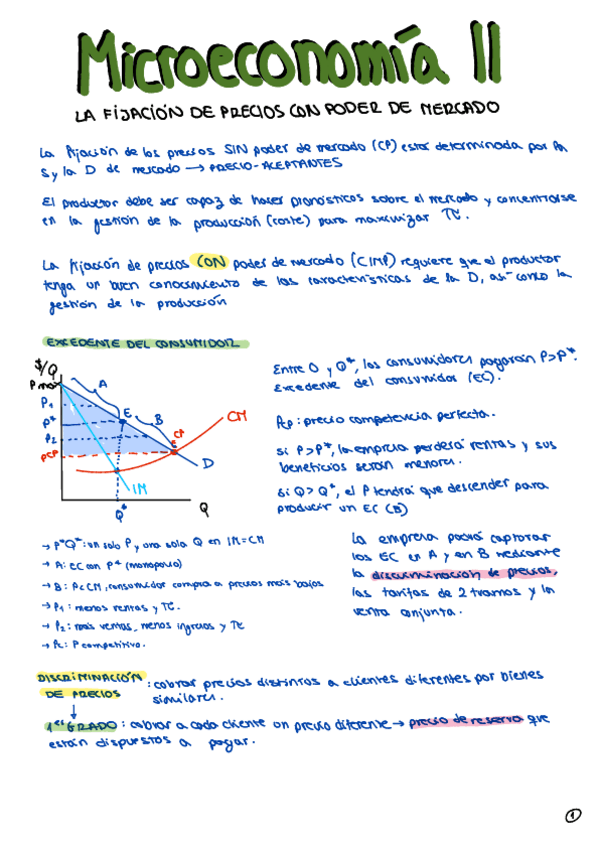 Microeconomía II
LA FIJACIÓN DE PRECIOS CON PODER DE MERCADO
La fijación de los precios SIN poder de mercado (CP) estar determinada por la
S y la D de mercado → PRECIO-ACEPTANTES
El productor debe ser capaz de hacer pronósticos sobre el mercado y concentrarse
en la gestión de la producción (coste) para maximizar π.
La fijación de precios CON poder de mercado (CIMP) requiere que el productor
tenga un buen conocimiento de las características de la D, así como la
gestión de la producción
EXCEDENTE DEL CONSUMIDOR
$/Q
Pmax
P1
P*
P2
PCP
A
E
B
CP
CM
D
IM
Q*
Q
Entre 0 y Q*, los consumidores pagarán P>P*.
Excedente del consumidor (EC).
Pcp: precio competencia perfecta.
si P>P*, la empresa perderá rentas y sus
beneficios serán menores.
si Q>Q*, el P tendrá que descender para
producir un EC (B)
→ P*Q*: un solo P y una sola Q en IM=CM
→ A: EC con P* (monopolio)
→ B: P<CM, consumidor compra a precios más bajos
→ P1: menos rentas y π.
→ P2: más ventas, menos ingresos y π
→ Pc: P competitivo.
La empresa podrá capturar
los EC en A y en B mediante
la discriminación de precios,
las tarifas de 2 tramos y la
venta conjunta.
DISCRIMINACCIÓN
DE PRECIOS
: cobrar precios distintos a clientes diferentes por bienes
similares.
1er GRADO: cobrar a cada cliente un precio diferente → precio de reserva que
están dispuestos a pagar.
1